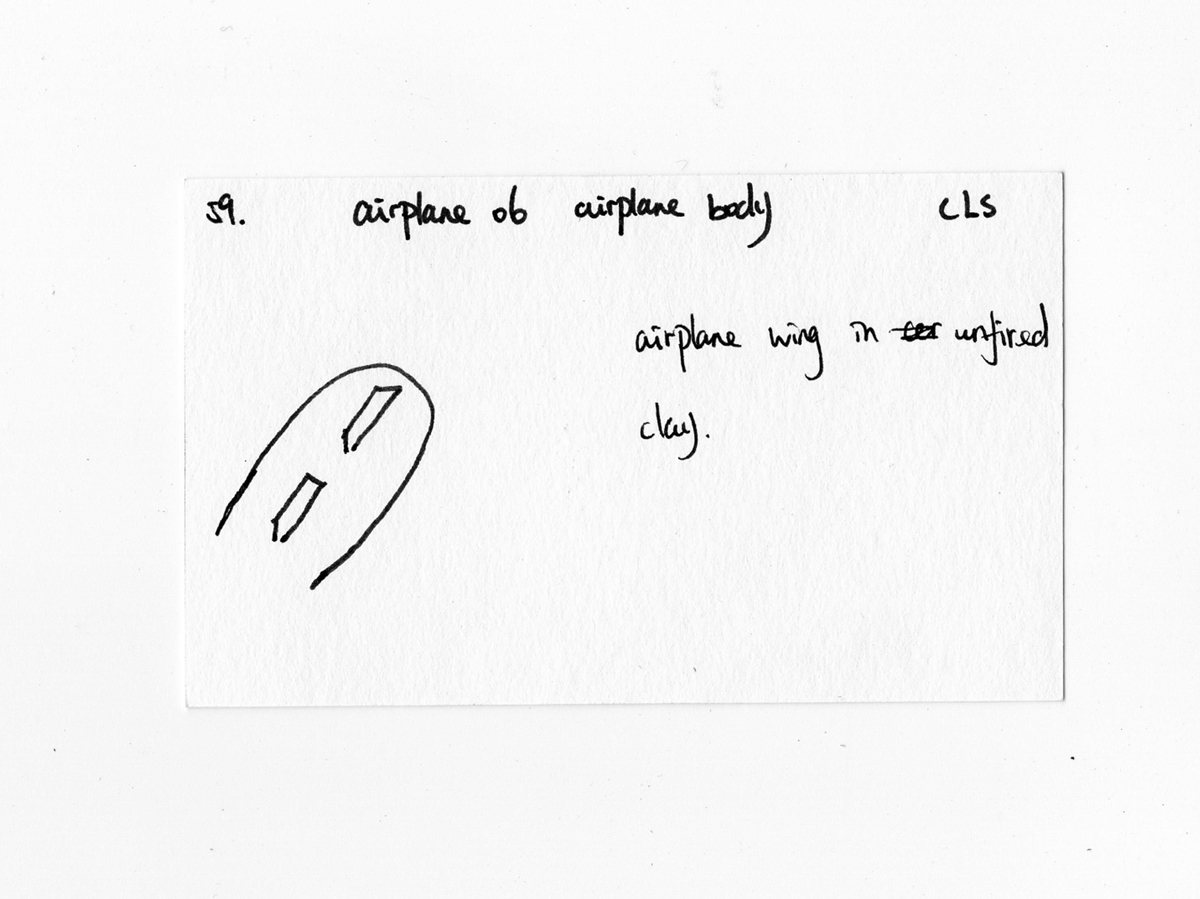 59. airplane 06 airplane body CLS
airplane wing in unfired
clay.